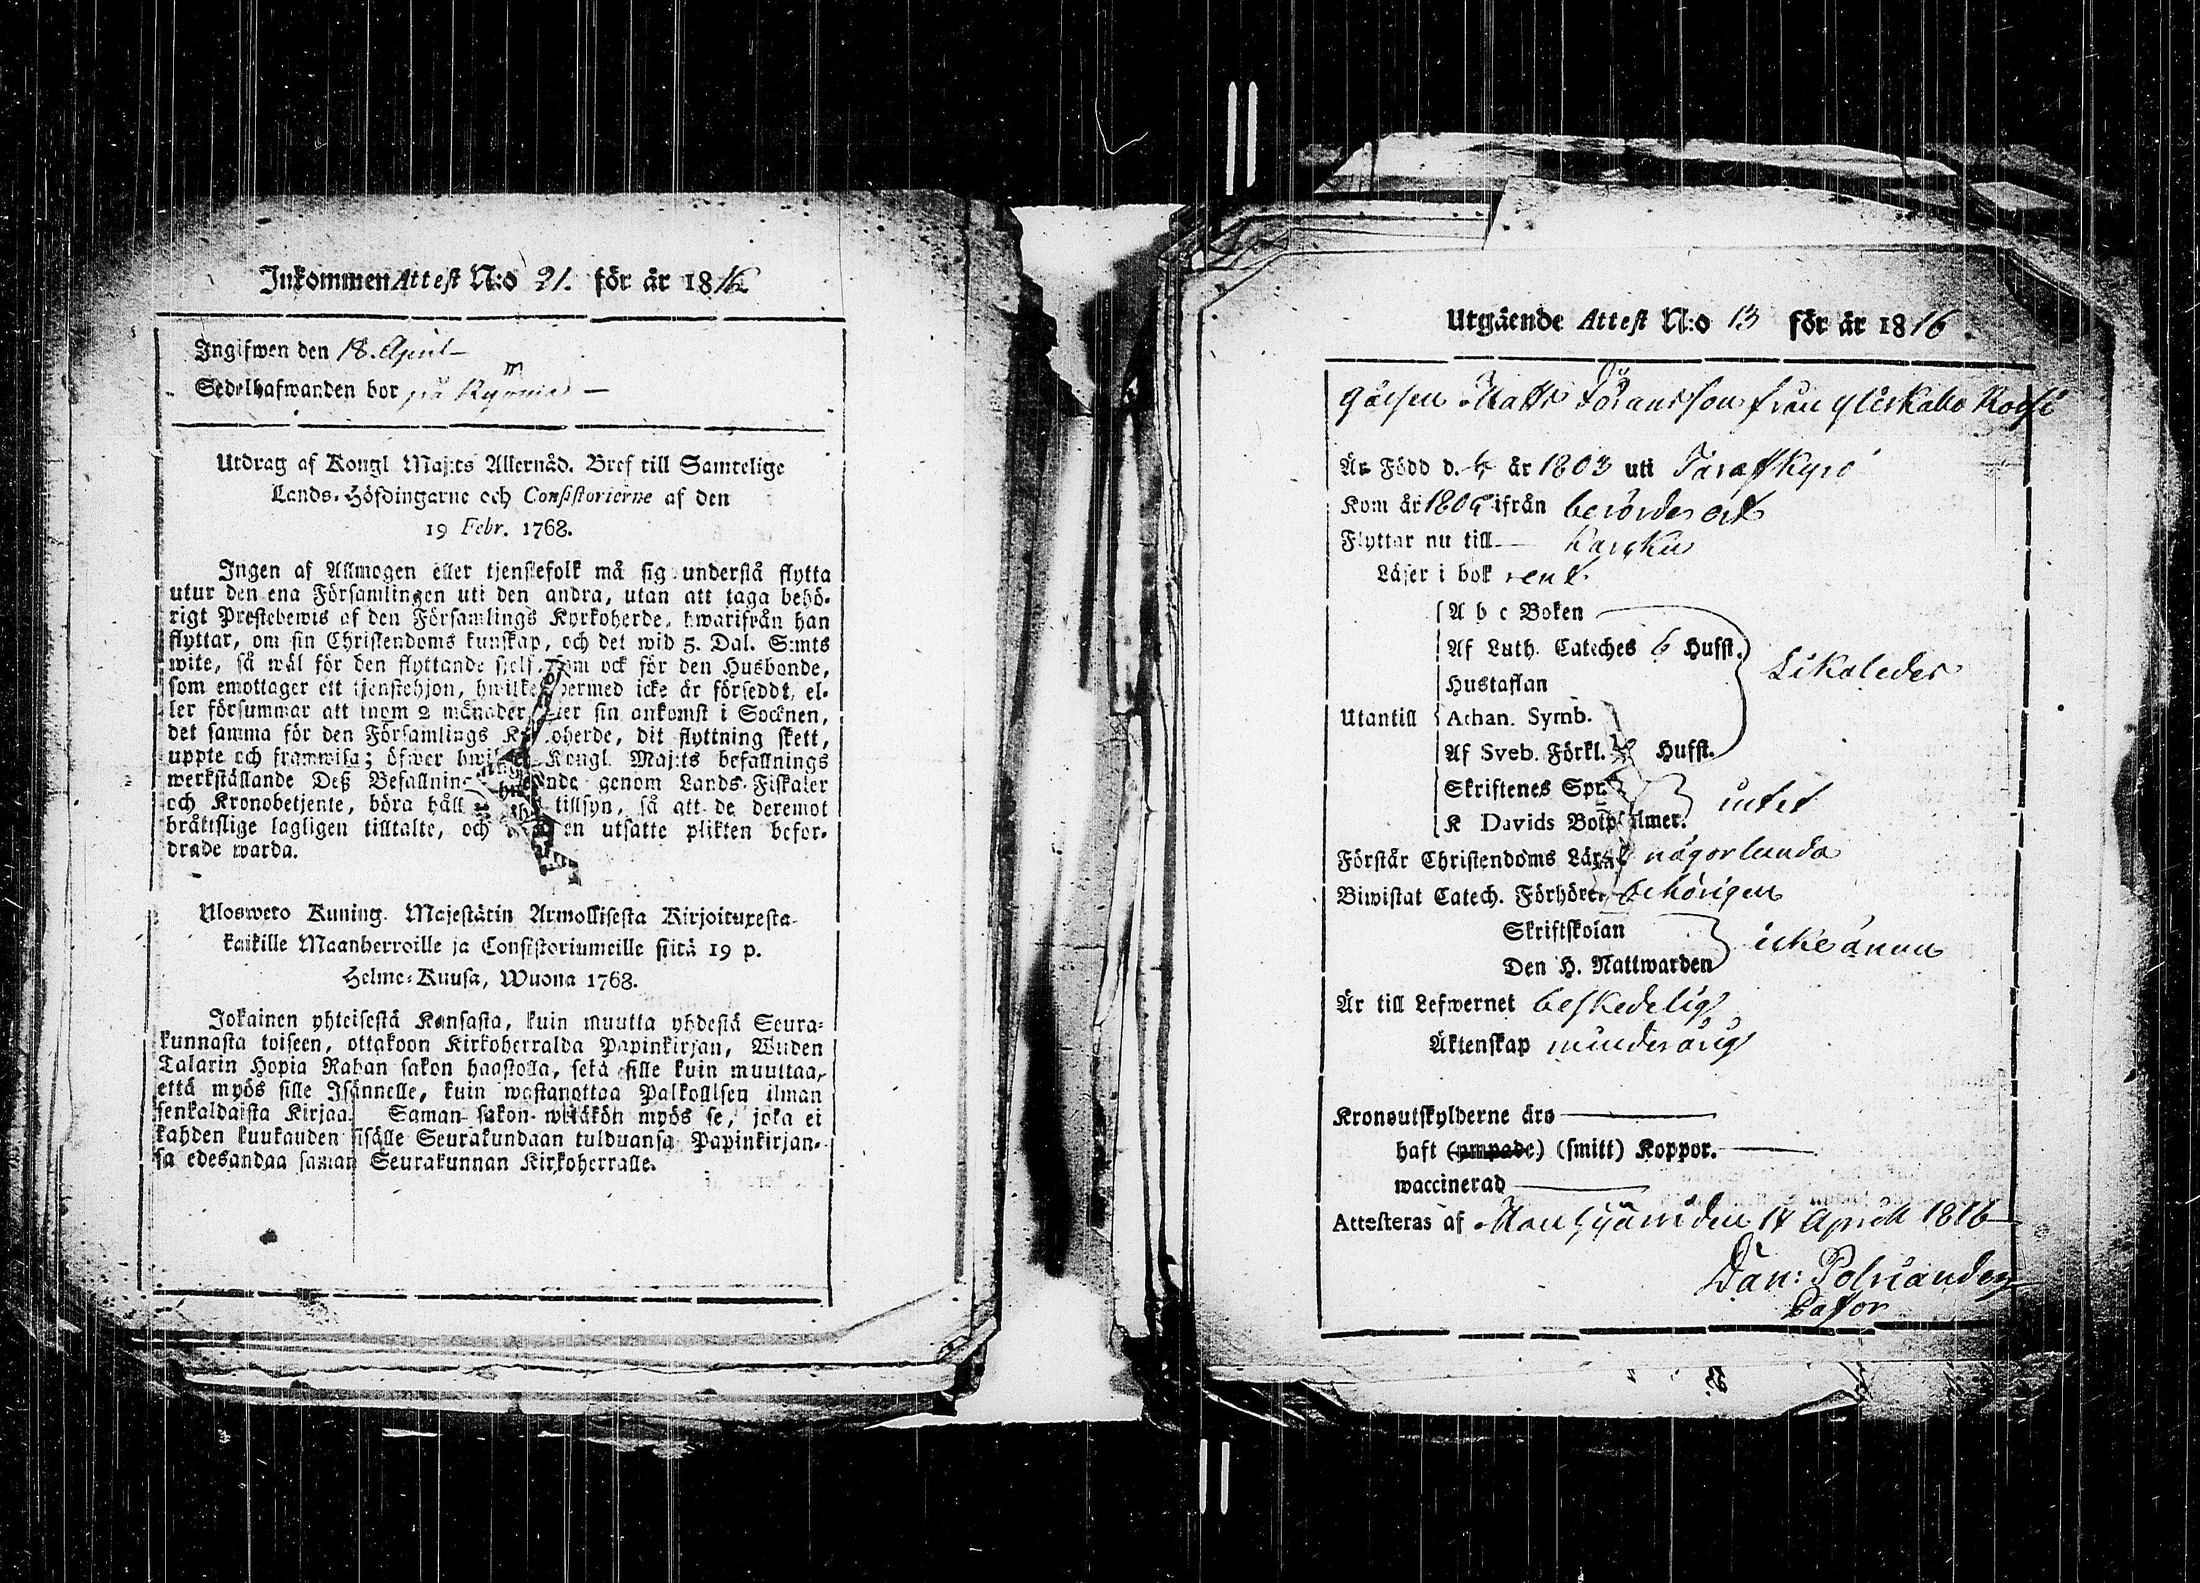 Inkommen Attest N:o 21. för år 1816
Ingifwen den 18. April
Sedelhafwanden bor på
Utdrag af Kongl Maj:ts Allernåd. Bref till Samtelige
Lands-Höfdingarne och Consistorierne af den
19 Febr. 1768.
Ingen af Allmogen eller tjenstefolk må sig understå flytta
utur den ena Församlingen uti den andra, utan att taga behö-
rigt Prestebewis af den Församlings Kyrkoherde, hwarifrån han
flyttar, om sin Christendoms kunskap, och det wid 5. Dal. S:mts
wite, så wäl för den flyttande sjelf, som ock för den Husbonde,
som emottager ett tjenstehjon, hwilket hermed icke är försedt, el-
ler försummar att inom 2 månader efter sin ankomst i Socknen,
det samma för den Församlings Kyrkoherde, dit flyttning skett,
uppte och framwisa; öfwer hwilket Kongl. Maj:ts befallnings
werkställande Deß Befallning genom Lands-Fiskaler
och Kronobetjente, böra håll tillsyn, så att de deremot
bråttslige lagligen tilltalte, och en utsatte plikten befor-
drade warda.
Ulosweto Kuning. Majestätin Armollisesta Kirjoituxesta
kaikille Maanherroille ja Consistoriumeille siitä 19 p.
Helme-Kuusa, Wuona 1768.
Jokainen yhteisestä Kansasta, kuin muutta yhdestä Seura-
kunnasta toiseen, ottakoon Kirkoherralda Papinkirjan, Wiiden
Talarin Hopia Rahan sakon haastolla, sekä sille kuin muuttaa,
että myös sille Isännelle, kuin wastanottaa Palkollisen ilman
senkaldaista Kirjaa. Saman sakon wetäkön myös se, joka ei
kahden kuukauden sisälle Seurakundaan tulduansa Papinkirjan-
sa edesandaa saman Seurakunnan Kirkoherralle.
Utgående Attest N:o 13 för år 1816.
Matts Göransson från
Är Född d. år 1803 uti Tavastkyro
Kom år ifrån berörde ort
Flyttar nu till Karkku
Läser i bok rent.
A b c Boken
Af Luth. Cateches 6 Hufst.
Hustaflan
Likaledes
Utantill Athan. Symb.
Af Sveb. Förkl. Hufst.
Skriftenes Spr.
intet
K Davids Botpsalmer.
Förstår Christendoms Lär. någorlunda
Biwistat Catech. Förhören behörigen
Skriftskolan
icke ännu
Den H. Nattwarden
Är till Lefwernet beskedelig
Äktenskap minderårig
Kronoutskylderne äro
haft (ympade) (smitt) Koppor.
waccinerad
Attesteras af den 14 Aprill 1816
Dan: Polviander
Pastor